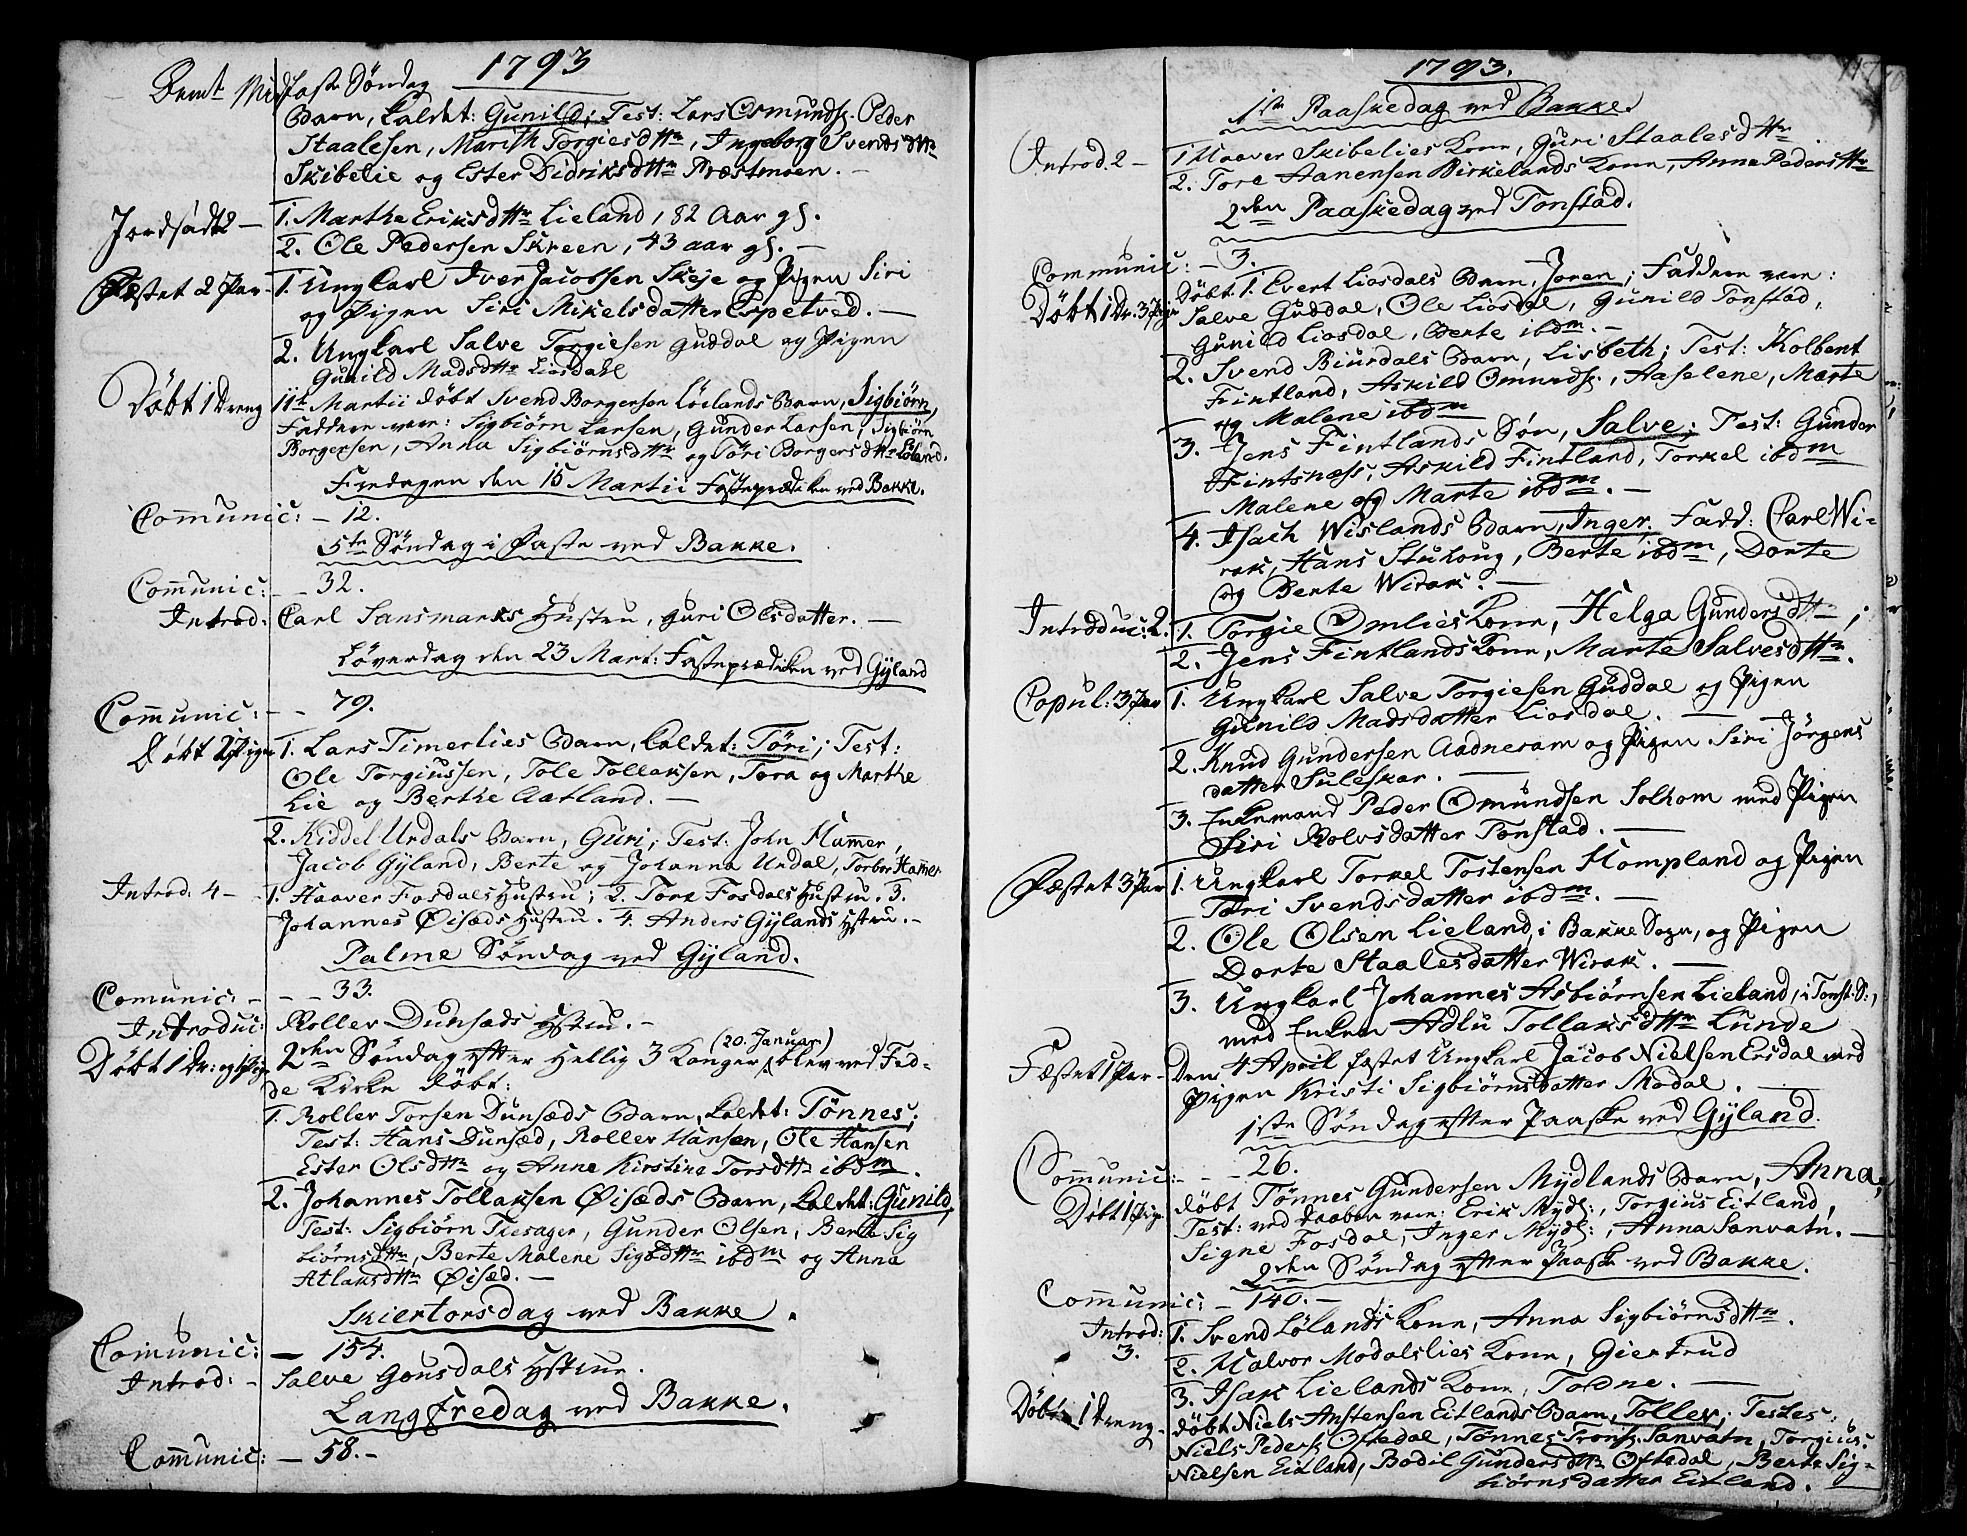 1793
Dom: Midfaste Söndag
Barn, kaldet: Gunild; Test: Lars Osmunds. Peder
Staalesen, Marith Torgiesdttr, Ingeborg Svendsdttr
Skibelie og Ester Didriksdttr Præstmoen. –
Jordfadt 2 – 1. Marthe Eriksdttr Lieland, 82 Aar gl.
2. Ole Pedersen Skreen, 43 aar gl. –
Fæstet 2 Par – 1. Ungkarl Iver Jacobsen Skeje og Pigen Siri
og Pigen Siri Mikelsdatter Espetved. –
2. Ungkarl Salve Torgiesen Guddal og Pigen
Gunild Madsdttr Liosdahl
Döbt 1 Dreng 11te Martii döbt Svend Borgersen Lölands Barn, Sigbiörn,
Faddere vare: Sigbiörn Larsen, Gunder Larsen, Sigbiörn
Borgersen, Anna Sigbiörnsdttr og Töri Borgersdttr Löland.
Fredagen den 15 Martii Fasteprædiken ved Bakke.
Communic: – 12.
5te Söndag i Faste ved Bakke.
Comunic: – 32.
Introd: Carl Sansmarks Hustru, Guri Olsdatter. –
Löverdag den 23 Mart: Fasteprædiken ved Gyland
Comunic: – – 79.
Döbt 2 Piger 1. Lars Timerlies Barn, kaldet: Töri; Test:
Ole Torgiussen, Tole Tollaksen, Tora og Marthe
Lie og Berthe Aatland. –
2. Kiddel Urdals Barn, Guri; Test: John Hamer,
Jacob Gyland, Berte og Johanna Urdal, Torbor Hamer
Introd. 4 – 1. Haaver Fosdals Hustru; 2. Tore Fosdals Hustru. 3.
Johannes Öisæds Hustru. 4. Anders Gylands Hstru. –
Palme Söndag ved Gyland.
Comunic: – – – 33.
Introduc: Roller Dunsæds Hstru. –
(20. Januar)
Döbt 1 Dr: og 1 Pige 2den Söndag efter Hellig 3 Konger blev ved Fed-
de Kirke döbt:
1. Roller Torsen Dunsæds Barn, kaldet: Tönnes;
Test: Hans Dunsæd, Roller Hansen, Ole Hansen
Ester Olsdttr og Anne Kirstine Torsdttr ibdm.
2. Johannes Tollaksen Öisæds Barn, kaldet: Gunild,
Test: Sigbiörn Tresager, Gunder Olsen, Berte Sig
biörnsdttr, Berte Malene Sigbdttr ibdm og Anna
Atlaksdttr Öisæd. –
Skiertorsdag ved Bakke.
Comunic: – 154.
Introd: – Salve Gousdals Hstrue.
Langfredag ved Bakke.
Communic: – 58. –
1793.
117
1ste Paaskedag ved Bakke.
Introd 2 – 1 Haaver Skibelies Kone, Guri Staalesdttr
2. Tore Aanensen Birkelands Kone, Anne Pedersdttr
2den Paaskedag ved Tonstad.
Communic: – 3.
Döbt 1 Dr. 3 Piger Döbt. 1. Evert Liosdals Barn, Joren; Faddere vare:
Salve Guddal, Ole Liosdal, Gunild Tonstad,
Gunild Liosdal, Berte ibdm. –
2. Svend Biurdals Barn, Lisbeth; Test: Kolbent
Fintland, Askild Omunds., Aaselene, Marte
og Malene ibdm
3. Jens Fintlands Sön, Salve; Test: Gunder
Fintsnæss, Askild Fintland, Torkel ibdm
Malene og Marte ibdm. –
4. Isach Wislands Barn, Inger. Fadd: Carl Wi-
rak, Hans Stuhoug, Berte ibdm, Dorte
og Berte Wirak. –
Introduc: 2. 1. Torgie Omlies Kone, Helga Gundersdttr;
2. Jens Fintlands Kone, Marte Salvesdttr.
Copul: 3 Par 1. Ungkarl Salve Torgiesen Guddal og Pigen
Gunild Madsdatter Liosdal. –
2. Knud Gundersen Aadneram og Pigen Siri Jörgens
datter Suleskar. –
3. Enkemand Peder Omundsen Solhom med Pigen
Siri Rolvsdatter Tonstad. –
Fæstet 3 Par 1. Ungkarl Torkel Tostensen Hompland og Pigen
Töri Svendsdatter ibdm. –
2. Ole Olsen Lieland i Bakke Sogn, og Pigen
Dorte Staalesdatter Wirak. –
3. Ungkarl Johannes Asbiörnsen Lieland, i Tonst: S:,
med Enken Adlu Tollaksdttr Lunde
Fæstet 1 Par – Den 4 April fæstet Ungkarl Jacob Nielsen Ersdal med
Pigen Kristi Sigbiörnsdatter Modal. –
1ste Söndag efter Paaske ved Gyland.
Communic: – – – 26.
Döbt 1 Pige döbt Tönnes Gundersen Mydlands Barn, Anna,
Test: ved Daaben vare: Erik Mydl:, Torgius Eitland,
Signe Fosdal, Inger Mydl:, Anna Sanvatn. –
2den Söndag efter Paaske ved Bakke.
Communic: – 140. –
Introd: 1. Svend Lölands Kone, Anna Sigbiörnsdttr.
3. 2. Halvor Modalslies Kone, Giertrud
3. Isak Lielands Kone, Todne. –
Döbt 1 Dreng – döbt Niels Anstensen Eitlands Barn, Tollev; Testes:
Niels Peders. Oftedal, Tönnes Trons. Sanvatn, Torgius
Nielsen Eitland, Bodil Gundersdttr Oftedal, Berte Sig-
biörnsdatter Eitland.